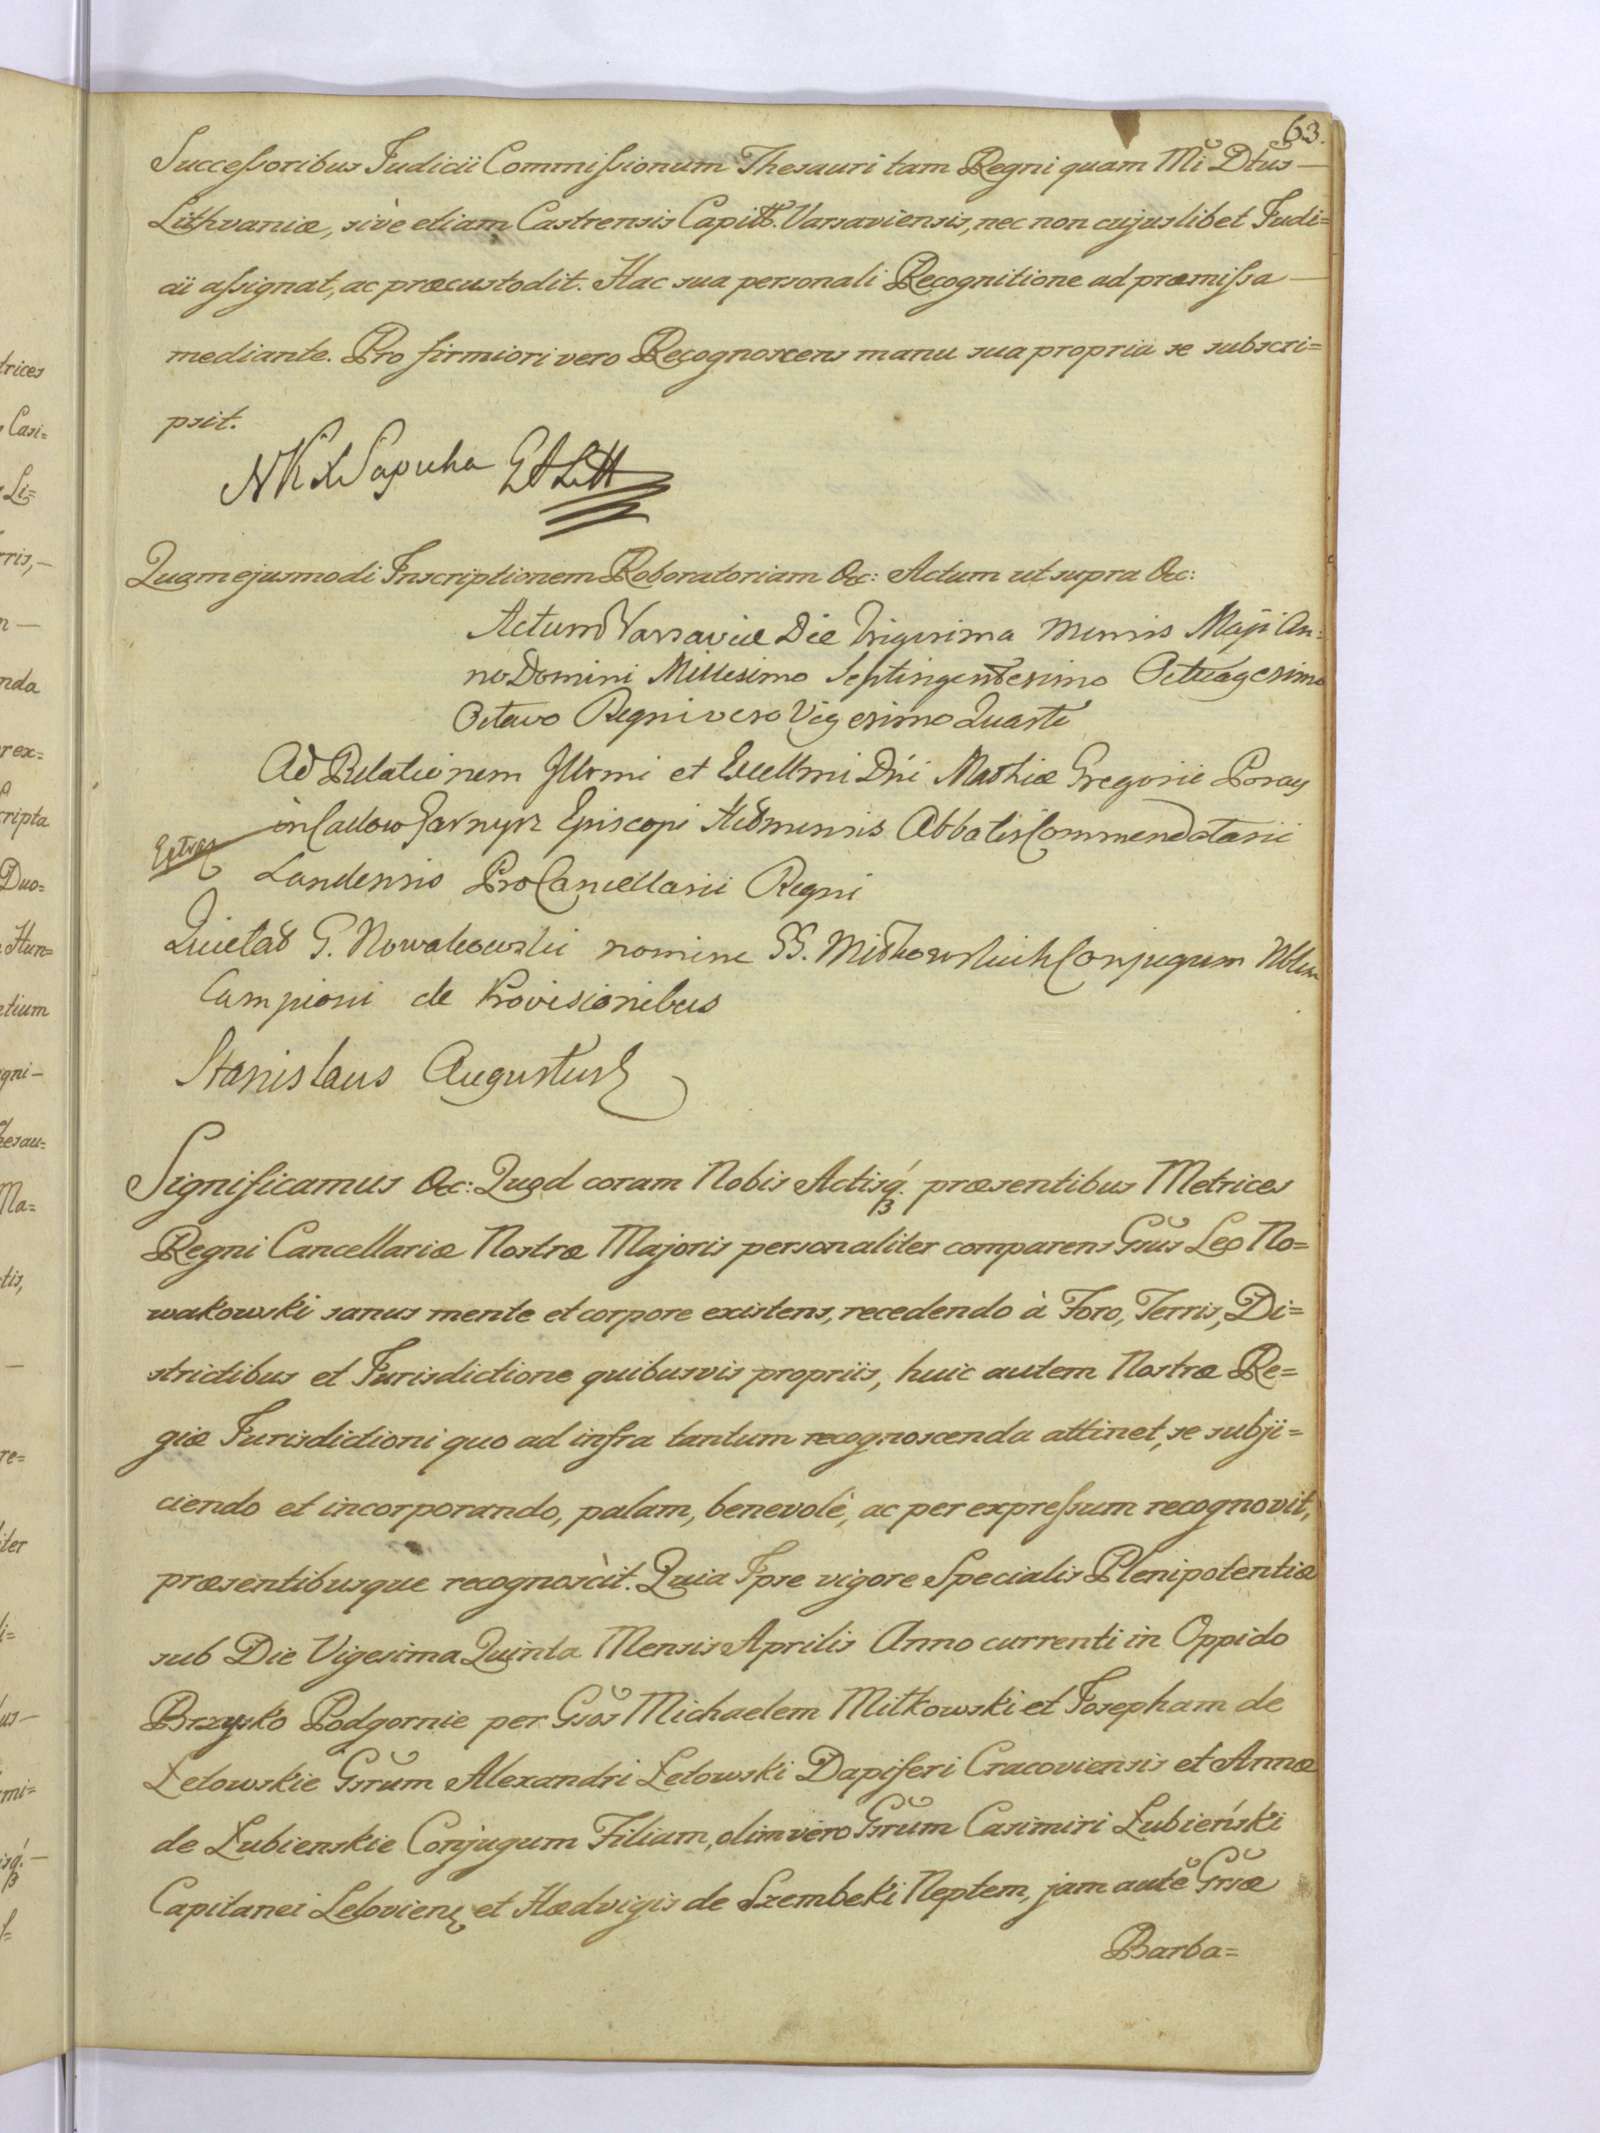 63.
Successoribus Judicii Commissionum Thesauri tam Regni quam Mi Dtus —
Lithvaniæ, sivè etiam Castrensis Capitt. Varsaviensis, nec non cujuslibet Judi=
cii assignat, ac præcustodit. Hac sua personali Recognitione ad præmissa —
mediante. Pro firmiori vero Recognoscens manu sua propria se subscri=
psit.
Sapieha
Quam ejusmodi Inscriptionem Roboratoriam &c: Actum ut supra &c:
Actum Varsaviæ Die Trigesima Mensis Maji An=
no Domini Millesimo Septingentesimo Octuagesimo
Octavo Regni vero Vigesimo Quarto
Ad Relationem Illrmi et Excellmi Dni Mathiæ Gregorii Poray
in Garnysz Episcopi Abbatis Commendatarii
Landensis ProCancellarii Regni
Quietat G. Nowakowski nomine GG. Mitkowskich Conjugum Nblem
Campioni de Provisionibus
Stanislaus Augustus
Significamus &c: Quod coram Nobis Actisq. præsentibus Metrices
Regni Cancellariæ Nostræ Majoris personaliter comparens Gsus Leo No=
wakowski sanus mente et corpore existens, recedendo à Foro, Terris, Di=
strictibus et Jurisdictione quibusvis propriis, huic autem Nostræ Re=
giæ Jurisdictioni quo ad infra tantum recognoscenda attinet, se subji=
ciendo et incorporando, palam, benevolè, ac per expressum recognovit,
præsentibusque recognoscit. Quia Ipse vigore Specialis Plenipotentiæ
sub Die Vigesima Quinta Mensis Aprilis Anno currenti in Oppido
Brzysko Podgornie per Gsos Michaelem Mitkowski et Josepham de
Łetowskie Gsrum Alexandri Łetowski Dapiferi Cracoviensis et Annæ
de Łubienskie Conjugum Filiam, olim vero Gsrum Casimiri Łubieński
Capitanei Leloviens et Hædvigis de Szembeki Neptem, jam autē Gsæ
Barba=